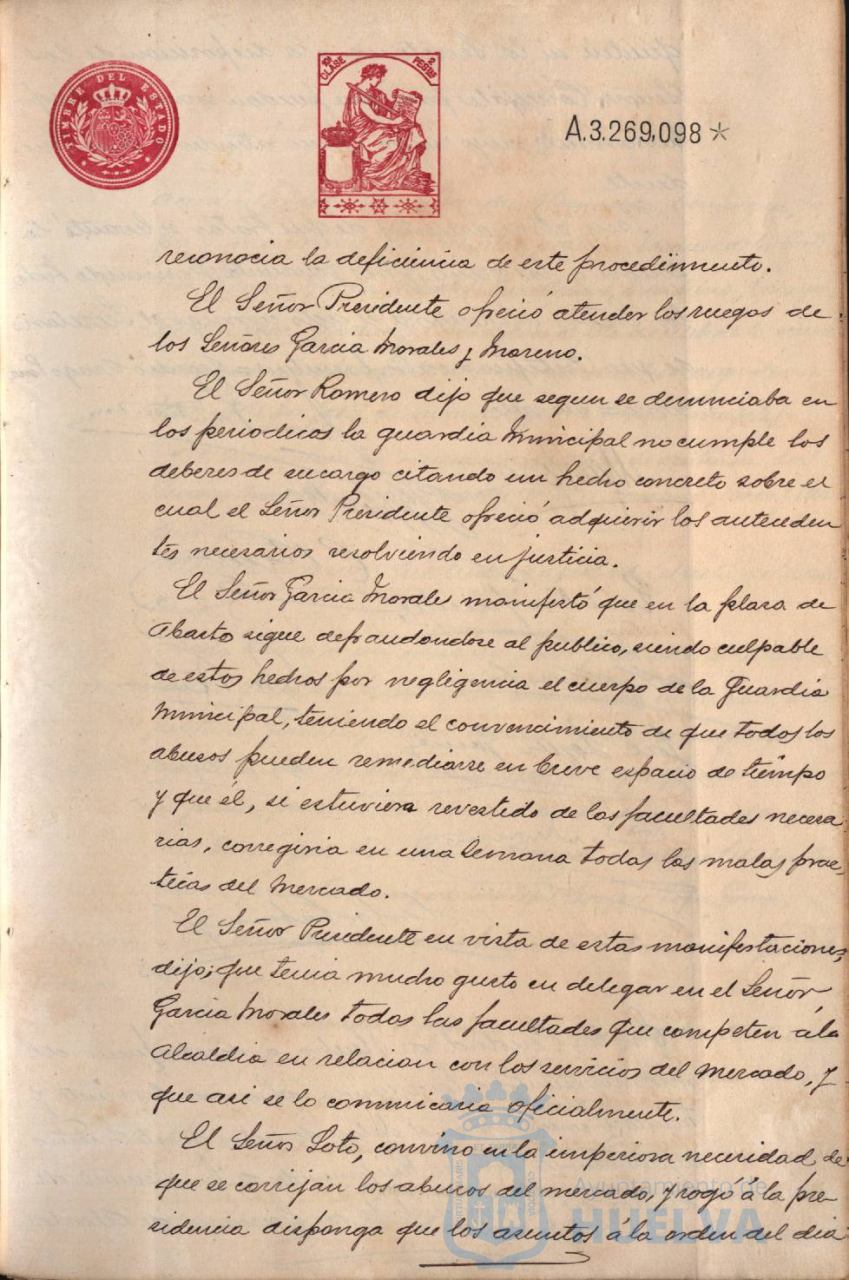 TIMBRE DEL ESTADO
10ª CLASE 2 PESTAS
A.3.269,098*
reconocia la deficiencia de este procedimiento.
El Señor Presidente ofreció atender los ruegos de
los Señores Garcia Morales y Moreno.
El Señor Romero dijo que segun se denunciaba en
los periodicos la guardia Municipal no cumple los
deberes de su cargo citando un hecho concreto sobre el
cual el Señor Presidente ofreció adquirir los anteceden
tes necesarios resolviendo en justicia.
El Señor Garcia Morales manifestó que en la plaza de
Abasto sigue defraudandose al publico, siendo culpable
de estos hechos por negligencia el cuerpo de la Guardia
Municipal, teniendo el convencimiento de que todos los
abusos pueden remediarse en breve espacio de tiempo
y que él, si estuviera revestido de las facultades necesa
rias, corregiria en una semana todas las malas prac
ticas del Mercado.
El Señor Presidente en vista de estas manifestaciones,
dijo; que tenia mucho gusto en delegar en el Señor
Garcia Morales todas las facultades que competen á la
Alcaldia en relacion con los servicios del Mercado, y
que asi se lo comunicaria oficialmente.
El Señor Soto, convino en la imperiosa necesidad de
que se corrijan los abusos del mercado, y rogó á la pre
sidencia disponga que los asuntos á la orden del dia
Ayuntamiento de
HUELVA